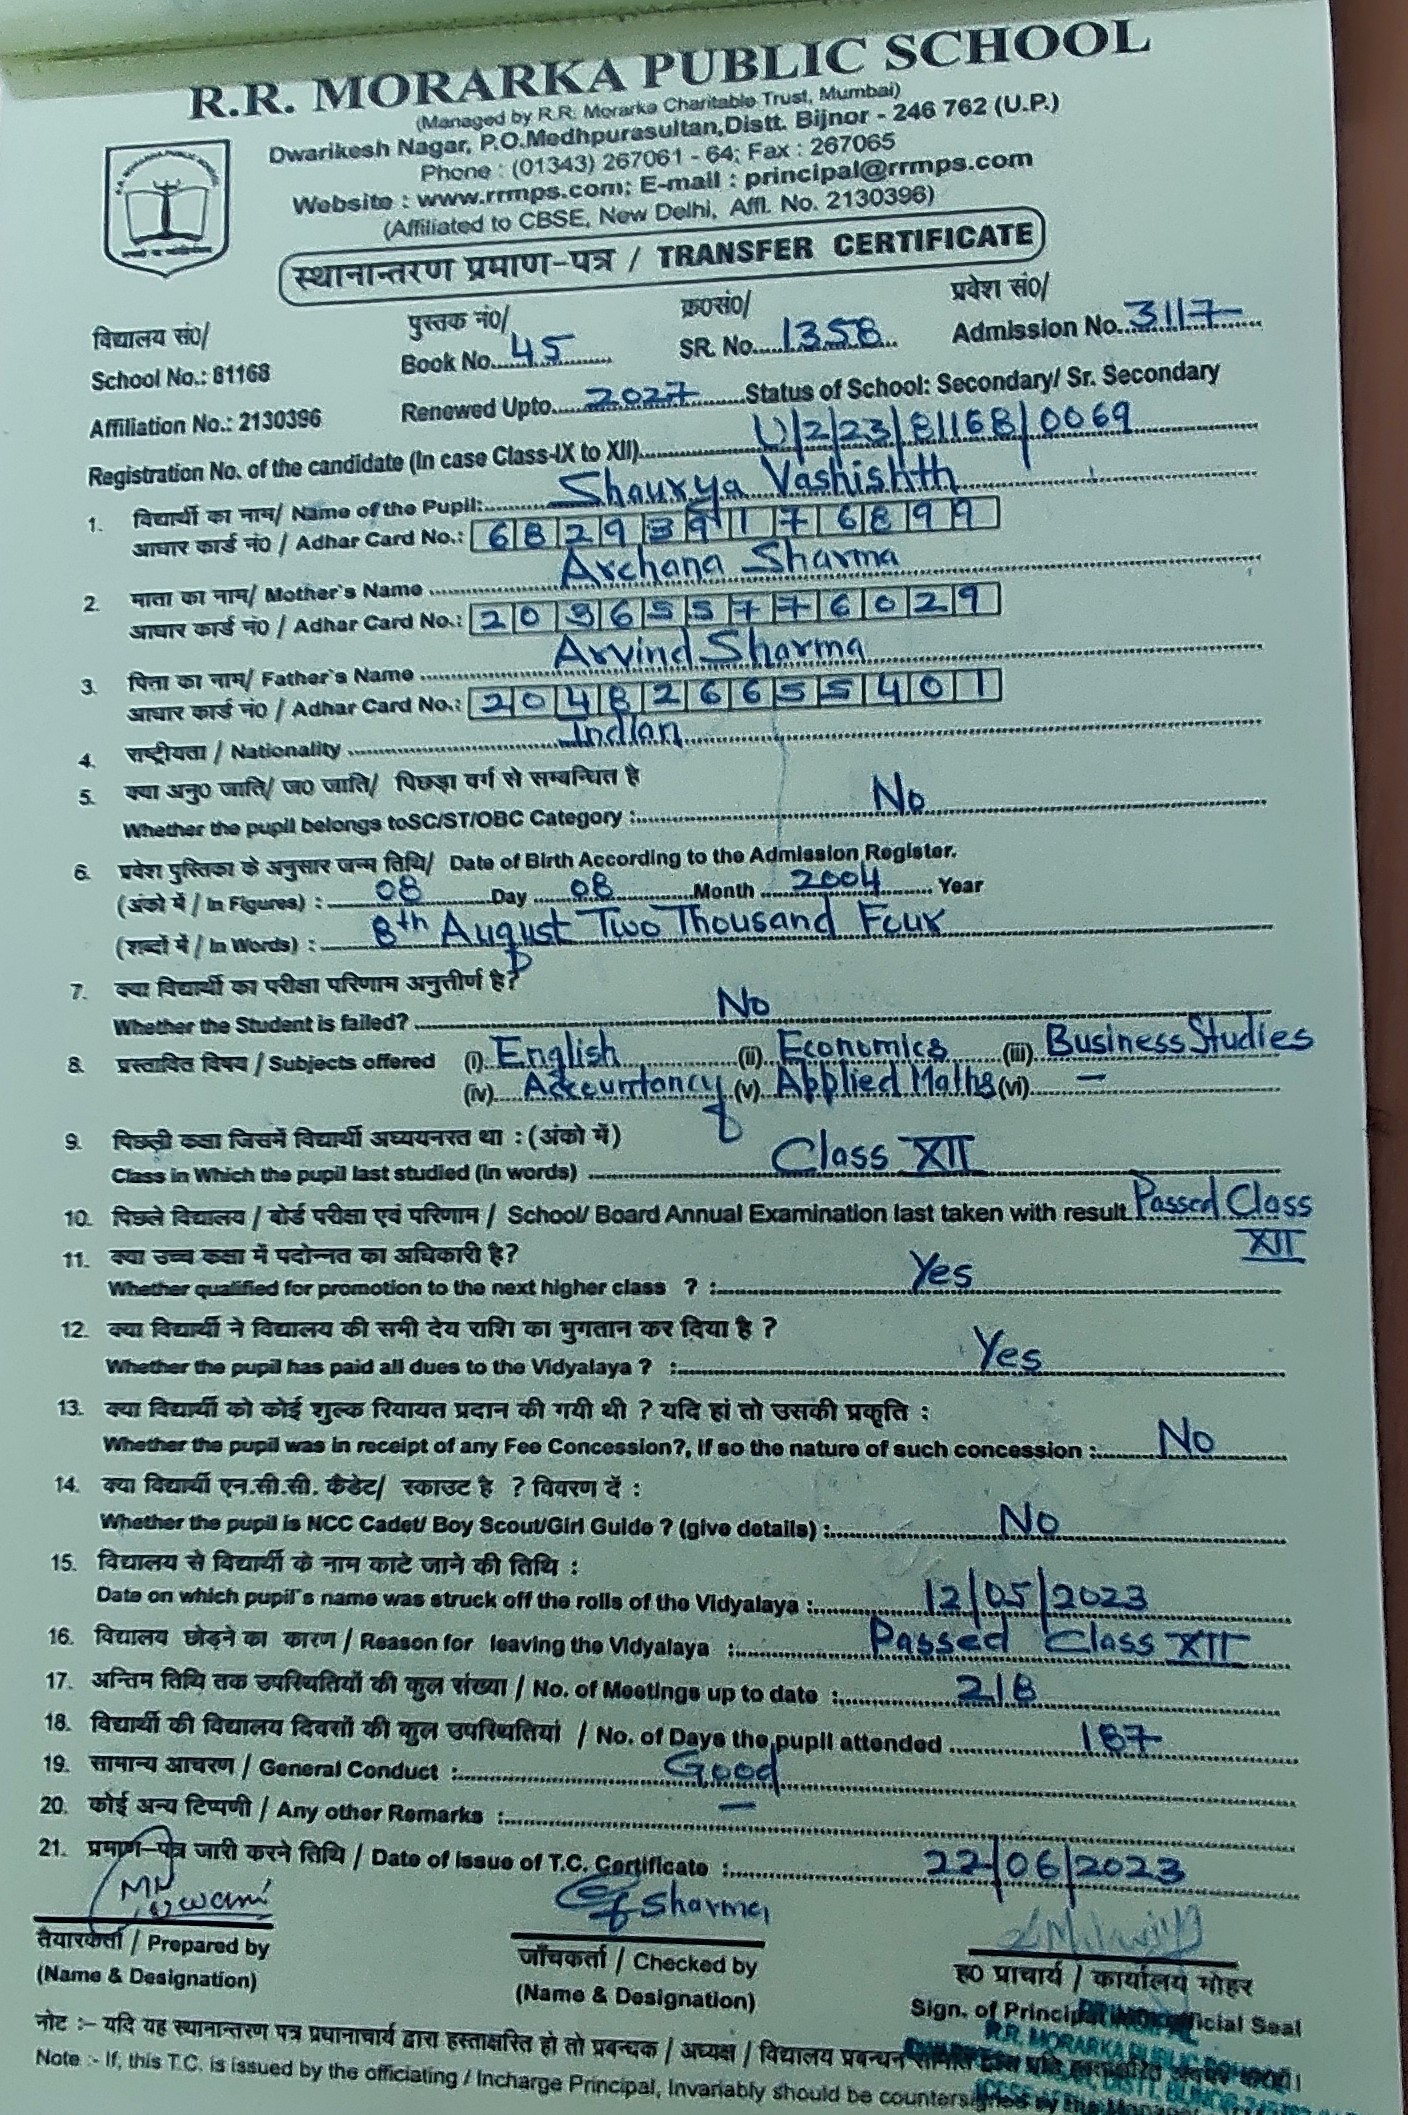 R.R. MORARKA PUBLIC SCHOOL
(Managed by R.R. Morarka Charitable Trust, Mumbai)
Dwarikesh Nagar, P.O.Medhpurasultan,Distt. Bijnor - 246 762 (U.P.)
Phone : (01343) 267061 - 64; Fax : 267065
Website : www.rrmps.com; E-mail : principal@rrmps.com
(Affiliated to CBSE, New Delhi, Affl. No. 2130396)
स्थानान्तरण प्रमाण-पत्र / TRANSFER CERTIFICATE
विद्यालय सं0/ पुस्तक नं0/ क्र0सं0/ प्रवेश सं0/
School No.: 81168 Book No. 45 SR. No. 1358 Admission No. 3117
Affiliation No.: 2130396 Renewed Upto 2027 Status of School: Secondary/ Sr. Secondary
Registration No. of the candidate (In case Class-IX to XII) U/2/23/81168/0069
1. विद्यार्थी का नाम/ Name of the Pupil: Shaurya Vashishth
आधार कार्ड नं0 / Adhar Card No.: 682939176899
2. माता का नाम/ Mother's Name Archana Sharma
आधार कार्ड नं0 / Adhar Card No.: 209655776029
3. पिता का नाम/ Father's Name Arvind Sharma
आधार कार्ड नं0 / Adhar Card No.: 204826655401
4. राष्ट्रीयता / Nationality Indian
5. क्या अनु0 जाति/ ज0 जाति/ पिछड़ा वर्ग से सम्बन्धित है
Whether the pupil belongs toSC/ST/OBC Category : No
6. प्रवेश पुस्तिका के अनुसार जन्म तिथि/ Date of Birth According to the Admission Register.
(अंको में / In Figures) : 08 Day 08 Month 2004 Year
(शब्दों में / In Words) : 8th August Two Thousand Four
7. क्या विद्यार्थी का परीक्षा परिणाम अनुत्तीर्ण है?
Whether the Student is failed? No
8. प्रस्तावित विषय / Subjects offered (i) English (ii) Economics (iii) Business Studies
(iv) Accountancy (v) Applied Maths (vi) —
9. पिछली कक्षा जिसमें विद्यार्थी अध्ययनरत था : (अंको में)
Class in Which the pupil last studied (in words) Class XII
10. पिछले विद्यालय / बोर्ड परीक्षा एवं परिणाम / School/ Board Annual Examination last taken with result Passed Class
XII
11. क्या उच्च कक्षा में पदोन्नत का अधिकारी है?
Whether qualified for promotion to the next higher class ? : Yes
12. क्या विद्यार्थी ने विद्यालय की सभी देय राशि का भुगतान कर दिया है ?
Whether the pupil has paid all dues to the Vidyalaya ? : Yes
13. क्या विद्यार्थी को कोई शुल्क रियायत प्रदान की गयी थी ? यदि हां तो उसकी प्रकृति :
Whether the pupil was in receipt of any Fee Concession?, If so the nature of such concession : No
14. क्या विद्यार्थी एन.सी.सी. कैडेट/ स्काउट है ? विवरण दें :
Whether the pupil is NCC Cadet/ Boy Scout/Girl Guide ? (give details) : No
15. विद्यालय से विद्यार्थी के नाम काटे जाने की तिथि :
Date on which pupil's name was struck off the rolls of the Vidyalaya : 12/05/2023
16. विद्यालय छोड़ने का कारण / Reason for leaving the Vidyalaya : Passed Class XII
17. अन्तिम तिथि तक उपस्थितियों की कुल संख्या / No. of Meetings up to date : 218
18. विद्यार्थी की विद्यालय दिवसों की कुल उपस्थितियां / No. of Days the pupil attended 187
19. सामान्य आचरण / General Conduct : Good
20. कोई अन्य टिप्पणी / Any other Remarks : —
21. प्रमाण-पत्र जारी करने तिथि / Date of issue of T.C. Certificate : 22/06/2023
Sharma
तैयारकर्ता / Prepared by जाँचकर्ता / Checked by ह0 प्राचार्य / कार्यालय मोहर
(Name & Designation) (Name & Designation) Sign. of Principal Official Seal
R.R. MORARKA PUBLIC SCHOOL
नोट :- यदि यह स्थानान्तरण पत्र प्रधानाचार्य द्वारा हस्ताक्षरित हो तो प्रबन्धक / अध्यक्ष / विद्यालय प्रबन्धन
Note :- If, this T.C. is issued by the officiating / Incharge Principal, Invariably should be countersigned by the